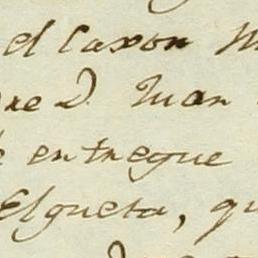 el Caxon
D. Juan
entregue
Elgueta, qu